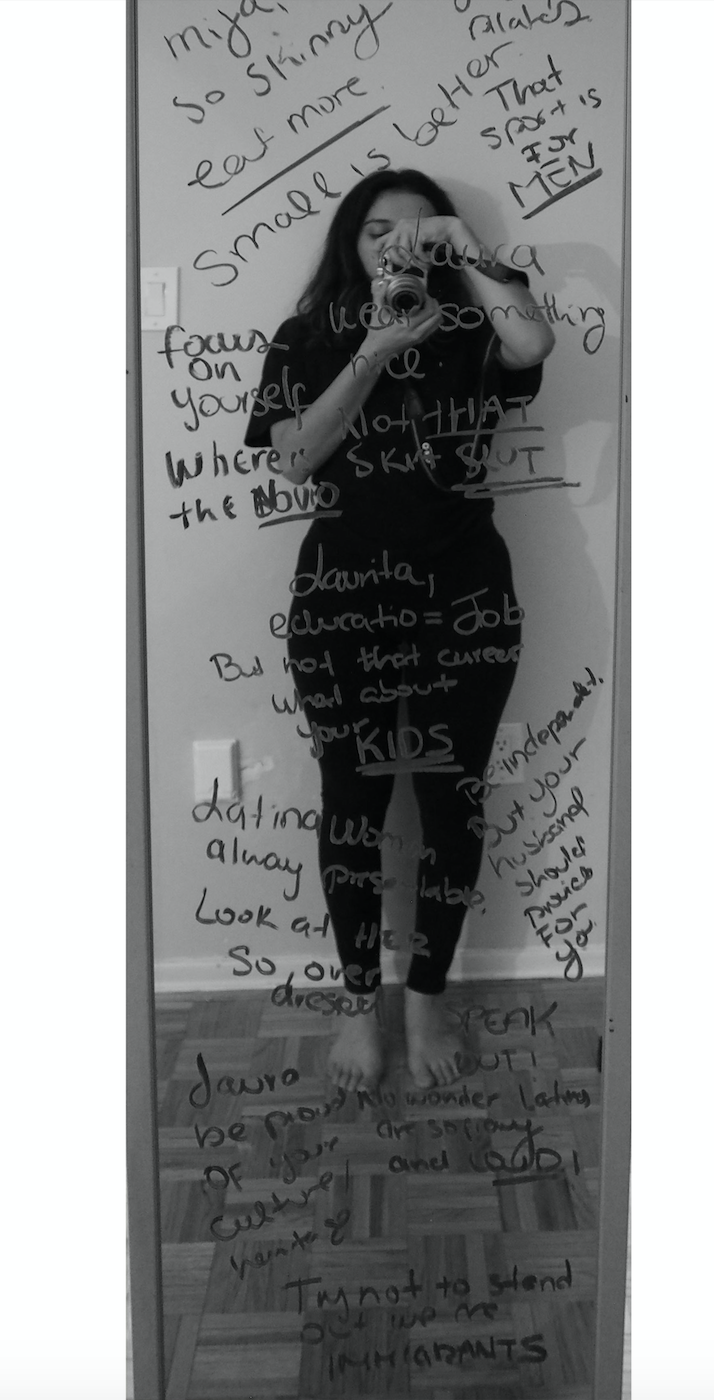 mija,
so skinny
eat more.
Small is better.
Pilates
That
sport is
For
MEN
Laura
wear something
nice
Not THAT
Skirt SLUT
focus
on
yourself
Where is
the Novio
Laurita,
educatio = Job
But not that career
what about
your
KIDS
Be independent.
But your
husband
should
provide
For
you.
Latina Women
alway presentable.
Look at HER
So over
dressed
SPEAK
OUT!
Laura
be proud
OF your
culture!
heritage
No wonder Latinas
are so
and LOUD!
Try not to stand
out we are
IMMIGRANTS